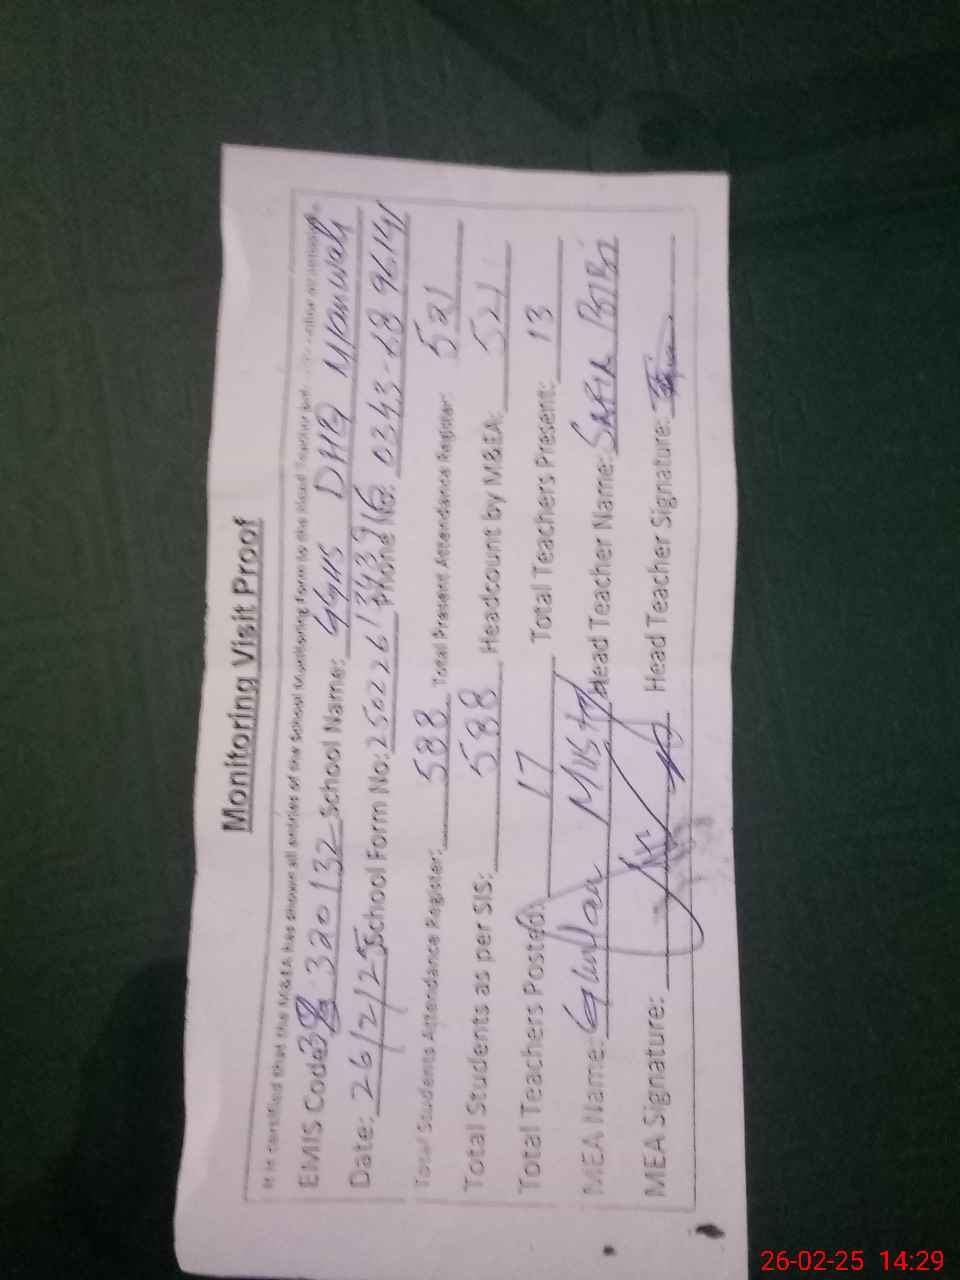 Monitoring Visit Proof
It is certified that the M&EA has shown all entries of the School Monitoring Form to the Head Teacher
EMIS Code: 38320132 School Name: GGHS DHQ Mianwali
Date: 26/2/25 School Form No: 250226/343916 Phone No: 0343-6896141
Total Students Attendance Register: 588 Total Present Attendance Register: 521
Total Students as per SIS: 588 Headcount by M&EA: 521
Total Teachers Posted: 17 Total Teachers Present: 13
MEA Name: Ghullam Mustafa Head Teacher Name: SAFIA BIBI
MEA Signature: Head Teacher Signature:
26-02-25 14:29